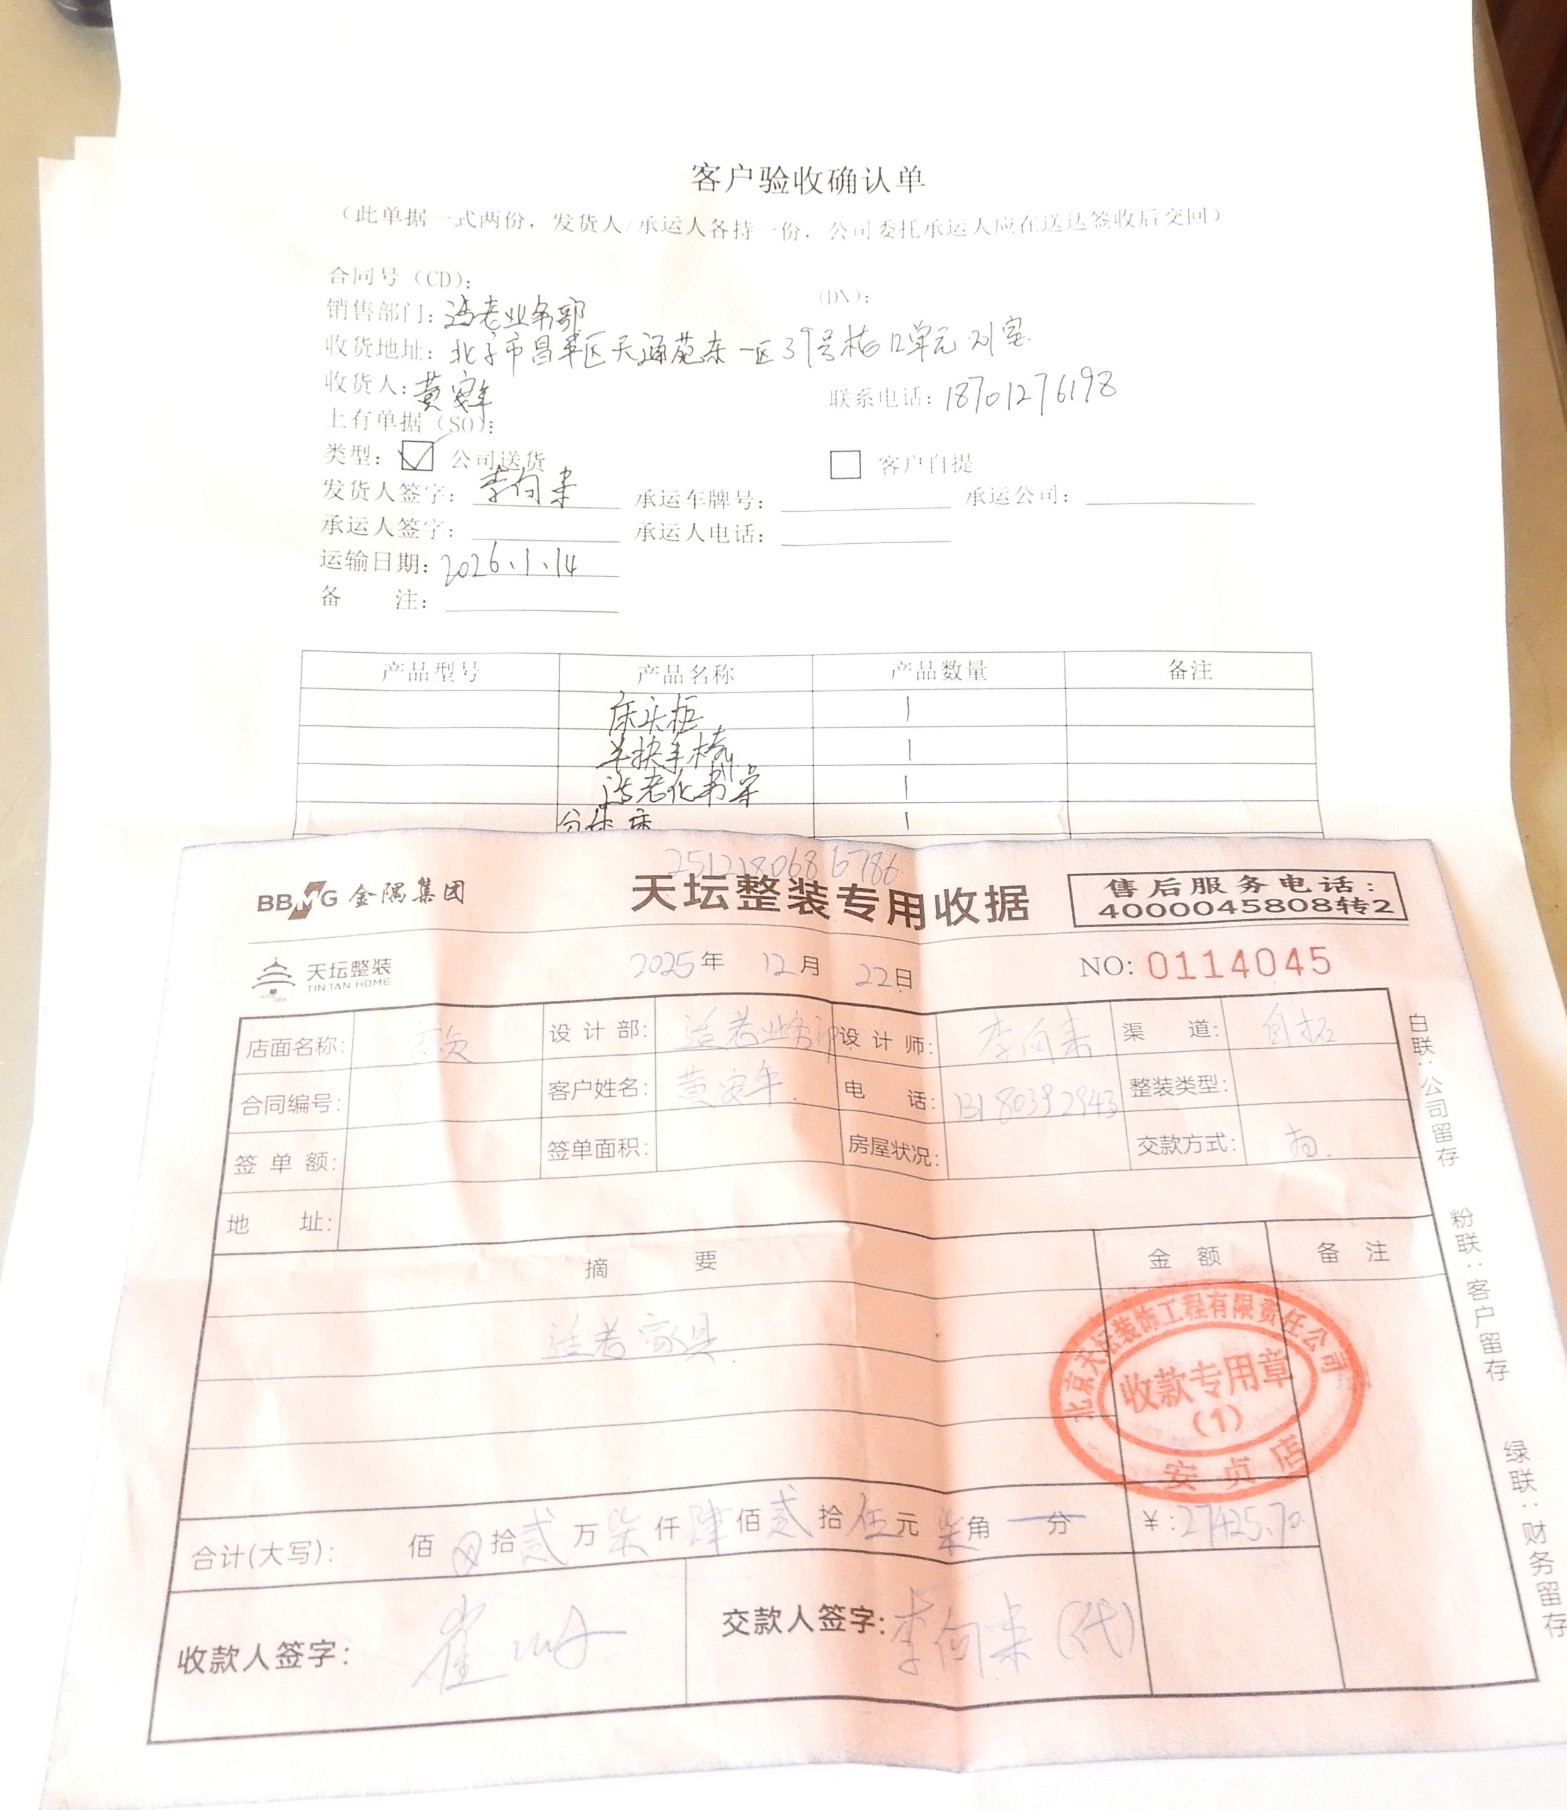 客户验收确认单
（此单据一式两份，发货人/承运人各持一份，公司委托承运人应在送达签收后交回）
合同号（CD）： （DN）：
销售部门：适老业务部
收货地址：北京市昌平区天通苑东一区39号楼12单元
收货人：黄安年 联系电话：18701276198
上有单据（SO）：
类型： 公司送货 客户自提
发货人签字：李向来 承运车牌号： 承运公司：
承运人签字： 承运人电话：
运输日期：2026.1.14
备 注：
产品型号 产品名称 产品数量 备注
床头柜 1
单扶手椅 1
适老化书桌 1
分体床 1
2512180686786
BBMG 金隅集团 天坛整装专用收据 售后服务电话：
4000045808转2
天坛整装 2025年 12月 22日 NO: 0114045
TINTAN HOME
店面名称： 安贞 设计部： 适老业务部 设计师： 李向来 渠 道： 自拓
合同编号： 客户姓名： 黄安年 电 话： 13180392943 整装类型：
签单额： 签单面积： 房屋状况： 交款方式：
地 址：
摘 要 金额 备注
适老家具
北京天坛装饰工程有限责任公司
收款专用章
(1)
安贞店
合计(大写)： 佰 拾贰万柒仟肆佰贰拾伍元柒角 分 ¥:27425.70
收款人签字： 交款人签字：李向来（代）
白联：公司留存
粉联：客户留存
绿联：财务留存